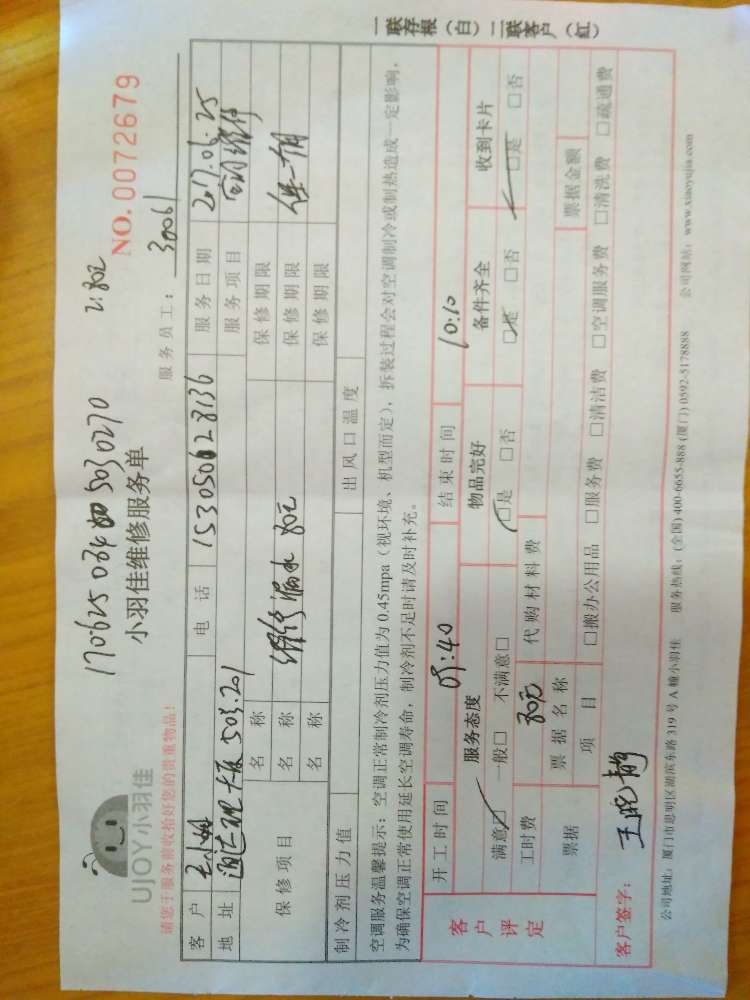 170625 034 5030270 2.802
UJOY 小羽佳
小羽佳维修服务单
NO. 0072679
请您于服务前收拾好您的贵重物品!
服务员工: 30061
客户 王小姐 电话 153050628136 服务日期 2017.06.25
地址 503.201 服务项目 空调维修
保修项目
名称 保修期限
名称 维修漏水 80元 保修期限 保一月
名称 保修期限
制冷剂压力值 出风口温度
空调服务温馨提示:空调正常制冷剂压力值为 0.45mpa(视环境、机型而定),拆装过程会对空调制冷或制热造成一定影响,
为确保空调正常使用延长空调寿命,制冷剂不足时请及时补充。
客户评定
开工时间 09:40 结束时间 10:10
服务态度 物品完好 备件齐全 收到卡片
满意□ 一般□ 不满意□ □是 □否 □是 □否 □是 □否
工时费 80元 代购材料费
票据 票据名称 票据金额
项目 □搬办公用品 □服务费 □清洁费 □空调服务费 □清洗费 □疏通费
客户签字:
公司地址:厦门市思明区湖滨东路 319 号 A 幢小羽佳 服务热线:(全国) 400-6655-888 (厦门) 0592-5178888 公司网站:www.xiaoyujia.com
一联存根(白)二联客户(红)